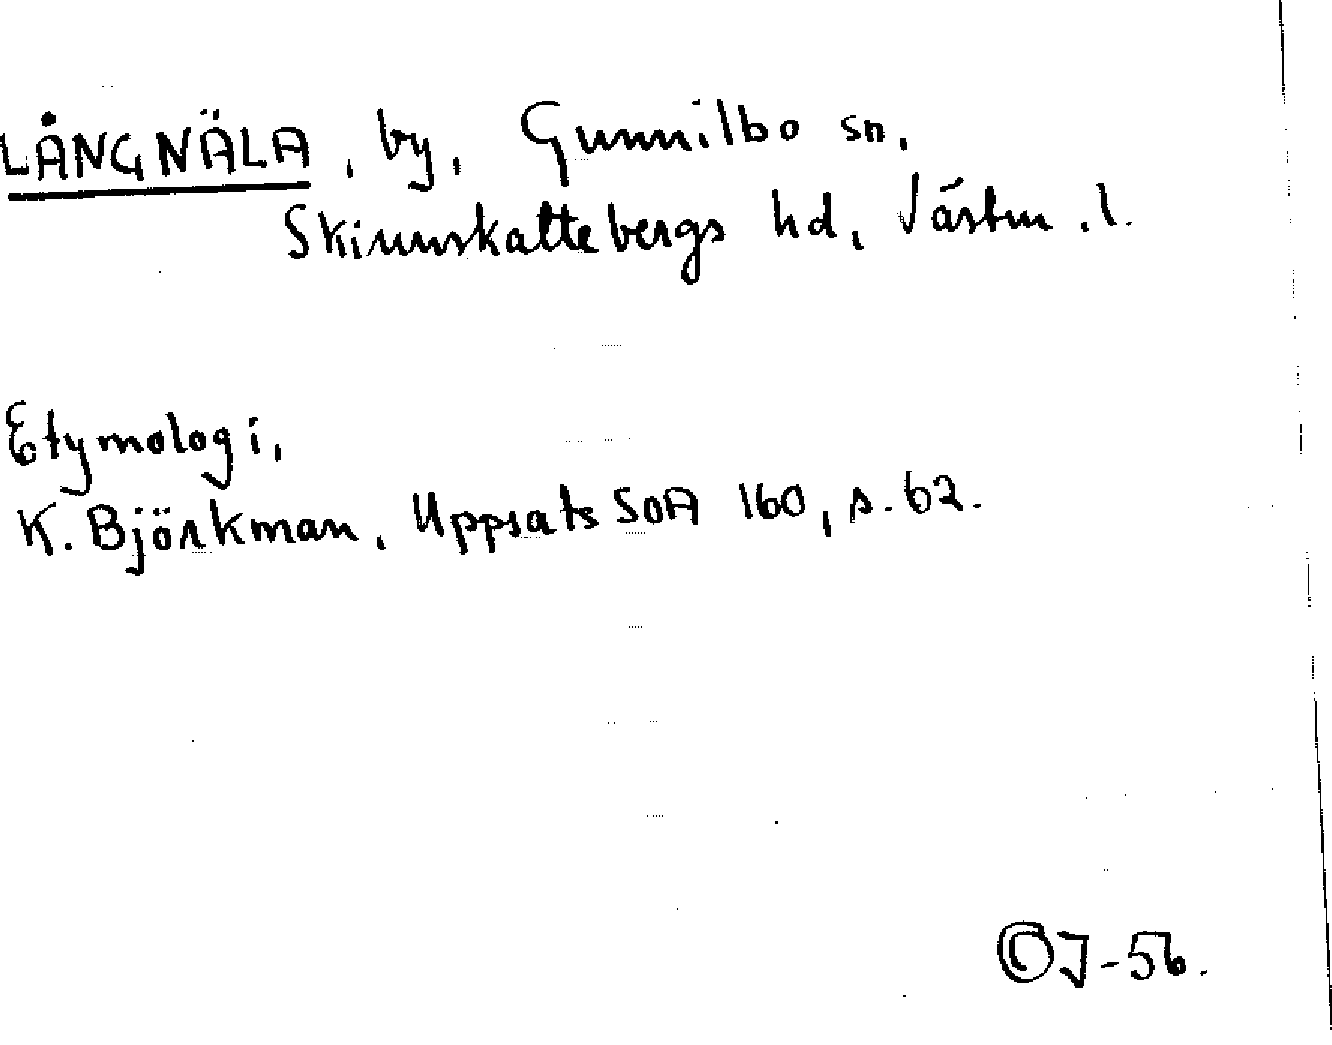 LÅNGNÄLA, by, Gunnilbo sn,
Skinnskattebergs hd, Västm. l.
Etymologi,
K. Björkman, Uppsats SOA 160, s. 62.
©J-56.